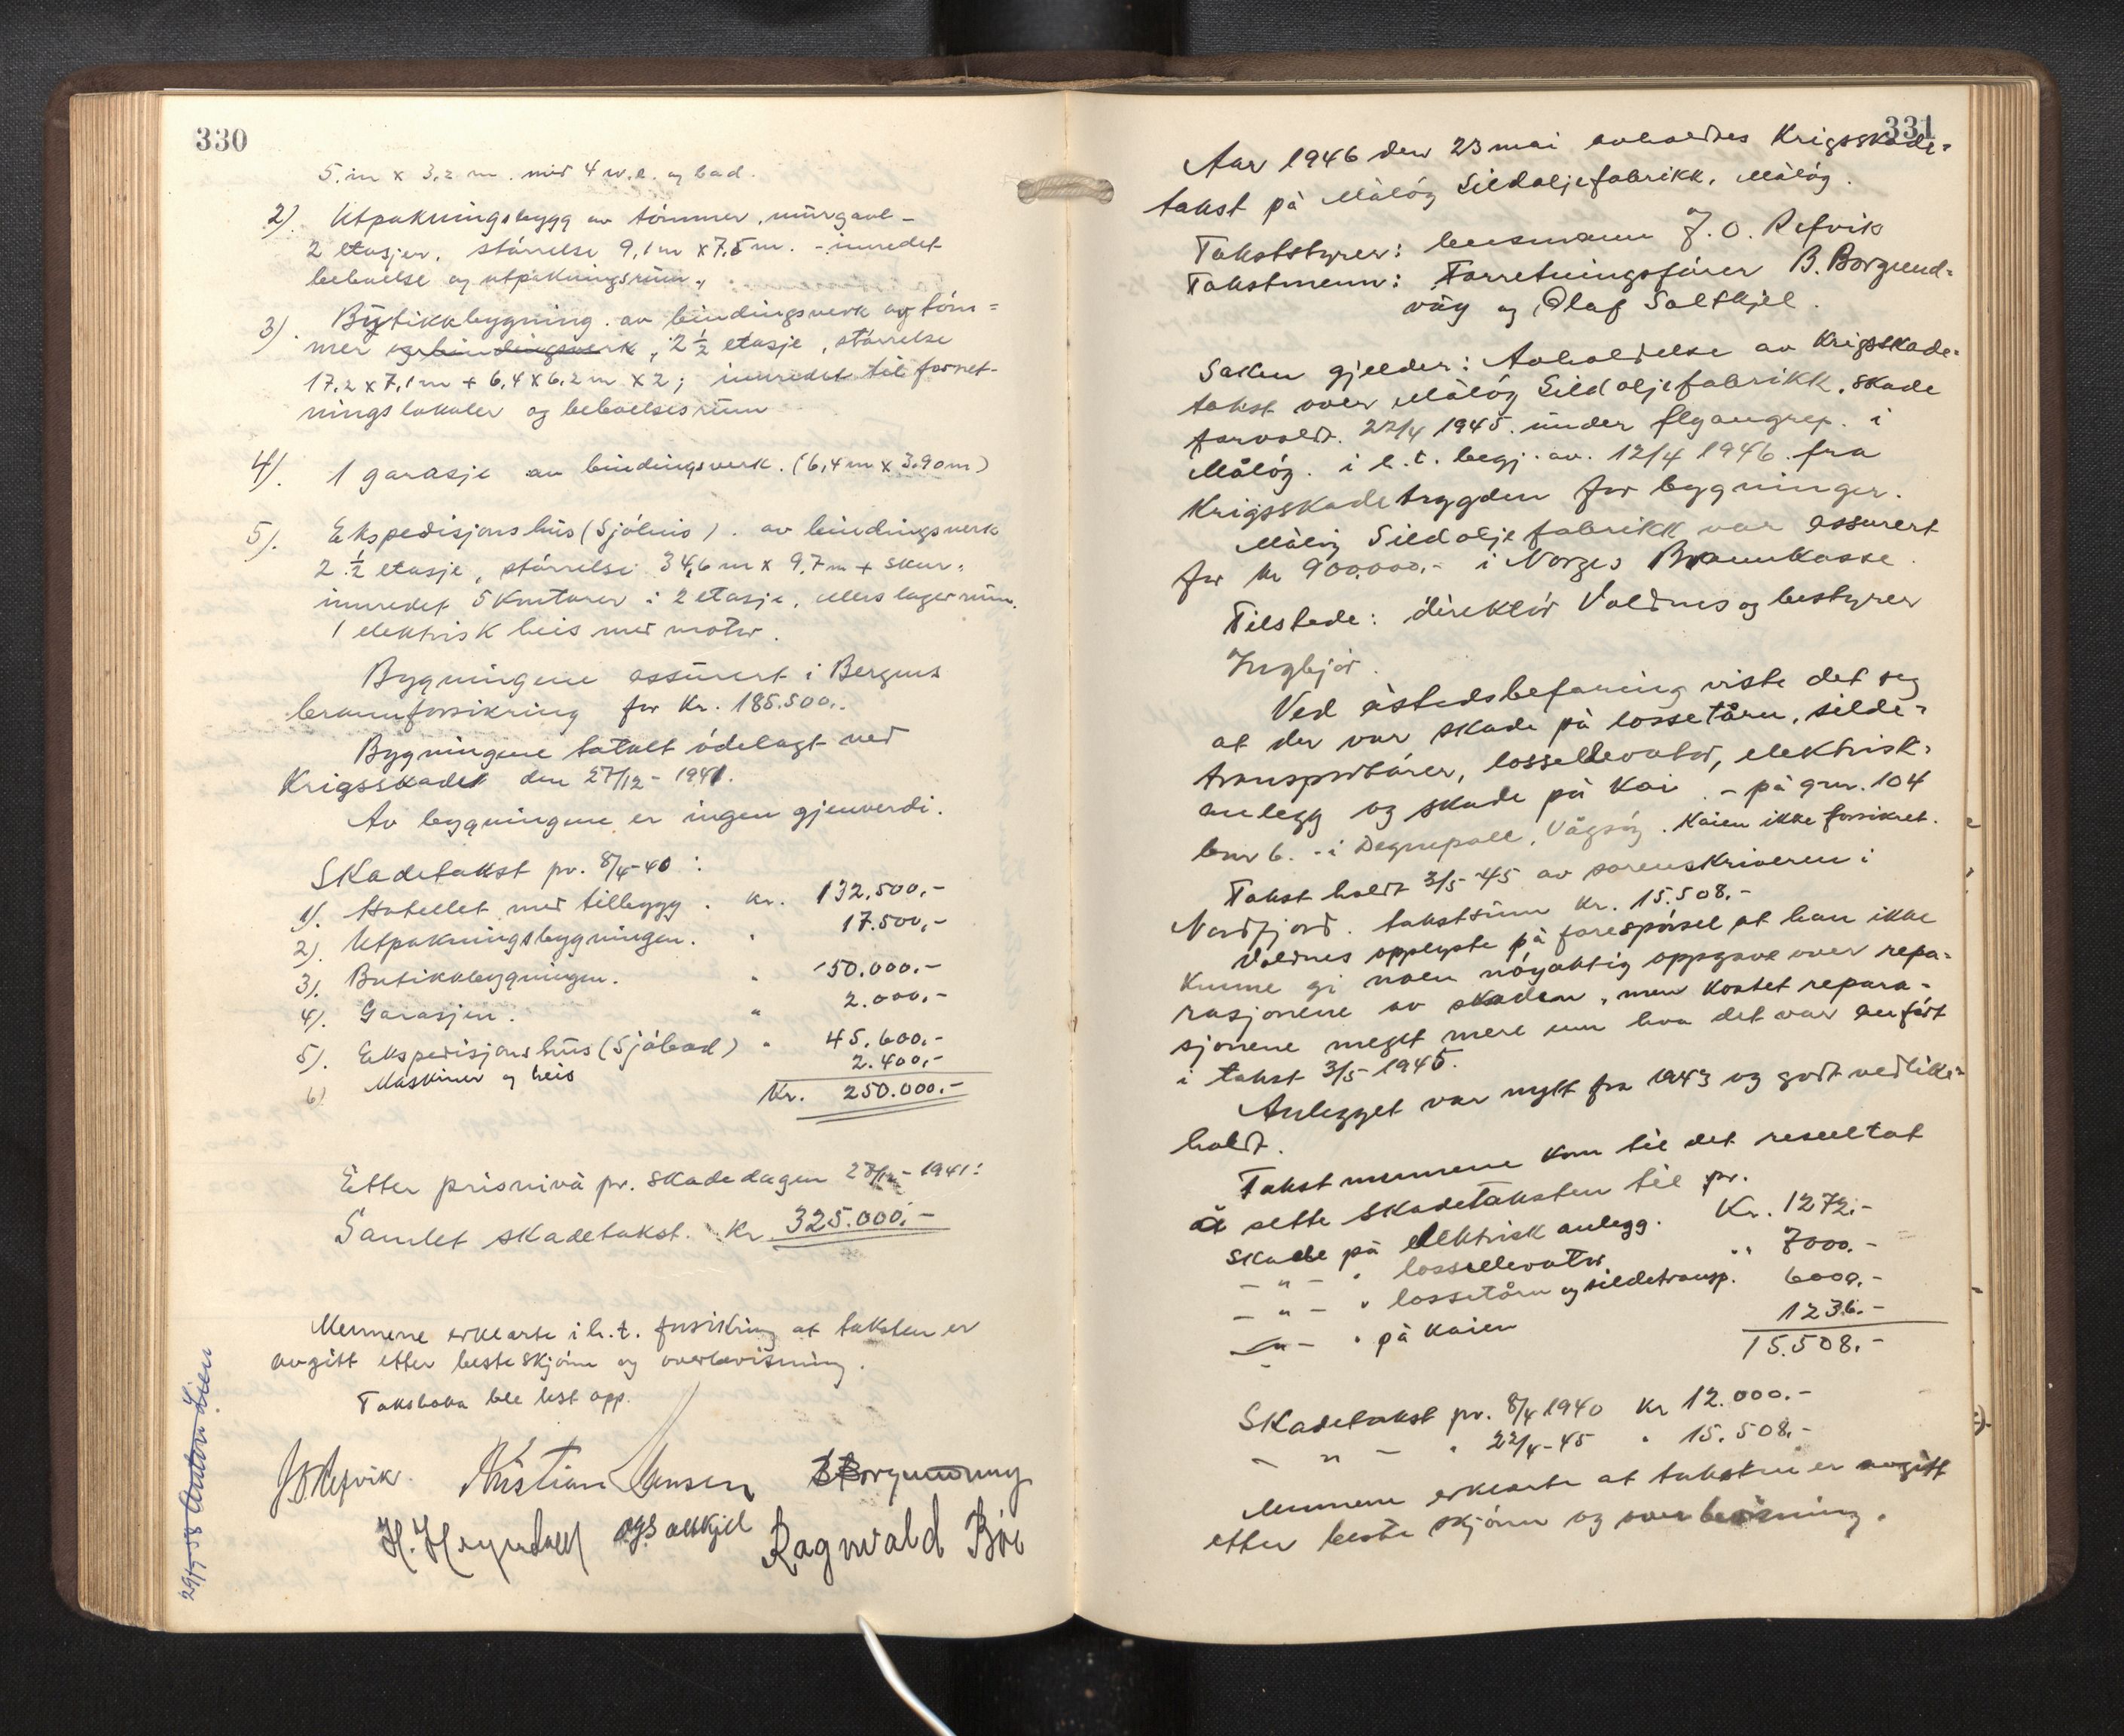 330
5.m x 3,2 m. med 4 w.c. og bad.
2). Utpakningsbygg av tömmer, murgavl -
2 etasjer, störrelse 9,1m x 7,5m. - innredet
beboelse og utpakningsrum.
3). Butikkbygning. av bindingsverk og töm=
mer og bindingsverk, 2 1/2 etasje, störrelse
17,2 x 7,1m + 6,4 x 6,2 m x 2; innredet til forret-
ningslokaler og beboelsesrum
4). 1 garasje av bindingsverk. (6,4m x 3,90m)
5). Ekspedisjonshus (Sjöhus). av bindingsverk
2 1/2 etasje, störrelse 34,6 m x 9,7m + skur,
innredet 5 Kontorer i 2 etasje, ellers lagerrum.
1 elektrisk heis med motor.
Bygningene assurert i Bergens
brannforsikring for Kr. 185.500,-
Bygningene totalt ödelagt ved
Krigsskade den 27/12 - 1941.
Av bygningene er ingen gjenverdi.
Skadetakst pr. 8/4-40:
1). Hotellet med tillegg. kr. 132.500,-
2). Utpakningsbygningen. " 17.500,-
3). Butikkbygningen. " 50.000.-
4). Garasjen. " 2.000,-
5). Ekspedisjonshus (Sjöbod) " 45.600.-
6) Maskiner og heis 2.400,-
Kr. 250.000.-
Etter prisnivå pr. skadedagen 27/12 - 1941:
Samlet skadetakst. Kr. 325.000.-
Mennene erklærte i h.t. forsikring at taksten er
avgitt etter beste skjönn og overbevisning.
Takstboka ble lest opp.
JORefvik. Kristian Jensen
Ragnvald Böe
29/7-58
331
Aar 1946 den 23 mai avholdtes Krigsskade=
takst på Målöy Sildoljefabrikk, Målöy.
Takststyrer: lensmann J. O. Refvik
Takstmenn: Forretningsförer B. Borgund=
våg og Olaf Saltkjel.
Saken gjelder: Avholdelse av Krigsskade=
takst over Målöy Sildoljefabrikk, skade
forvoldt 22/4 1945. under flyangrep. i
Målöy. i h.t. begj. av. 12/4 1946. fra
Krigsskadetrygden for bygninger.
Målöy Sildoljefabrikk var assurert
for kr 900.000,- i Norges Brannkasse.
Tilstede: direktör Voldnes og bestyrer
Ingbjör.
Ved åstedsbefaring viste det seg
at der var skade på lossetårn, silde=
transportörer, losselevator, elektrisk-
anlegg og skade på Kai - på gnr. 104
bnr 6. - i Degnepoll, Vågsöy. Kaien ikke forsikret.
Takst holdt 3/5-45 av sorenskriveren i
Nordfjord. takstsum kr. 15.508.-
Voldnes opplyste på forespörsel at han ikke
kunne gi noen nöyaktig oppgave over repa=
rasjonene av skaden, men kostet repara-
sjonene meget mere enn hva det var anfört
i takst 3/5-1945.
Anlegget var nytt fra 1943 og godt vedlike=
holdt.
Takstmennene kom til det resultat
å sette skadetaksten til pr.
Skade på elektrisk anlegg. Kr. 1272.-
- " - " losselevator " 7000.-
- " - " lossetårn og sildetransp. 6000.-
- " - " på kaien 1236.-
15.508.-
Skadetakst pr. 8/4 1940 kr 12.000.-
- " - " 22/4-45 " 15.508.-
Mennene erklærte at taksten er avgitt
etter beste skjönn og overbevisning.